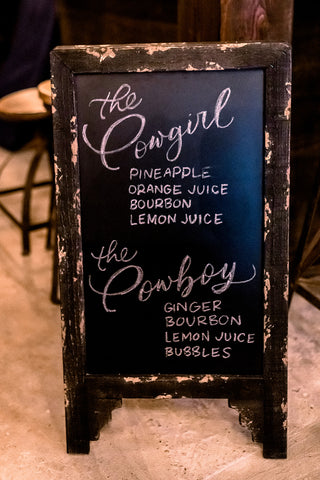 the
Cowgirl
PINEAPPLE
ORANGE JUICE
BOURBON
LEMON JUICE
the
Cowboy
GINGER
BOURBON
LEMON JUICE
BUBBLES